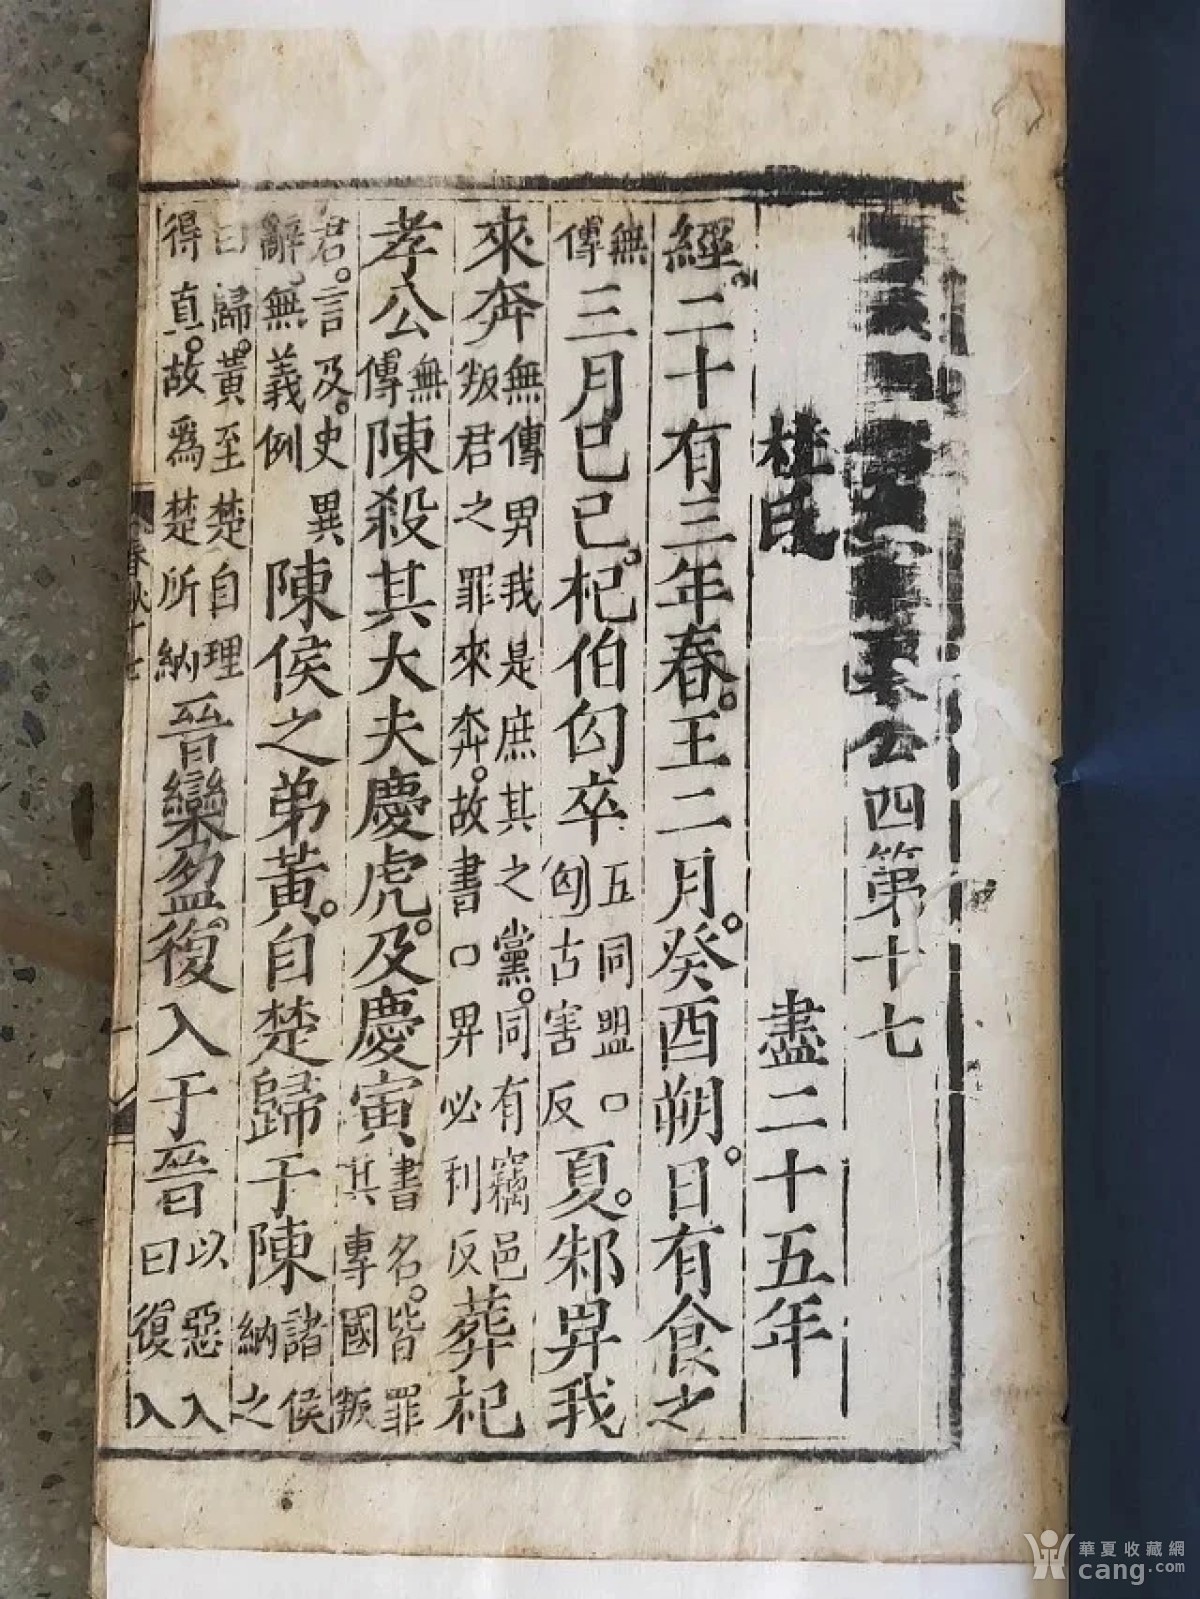 公四第十七
杜氏 盡二十五年
經。二十有三年春。王二月。癸酉朔。日有食之
無傳三月己巳。杞伯匄卒五同盟○匄古害反夏。邾畀我
來奔無傳畀我是庶其之黨。同有竊邑叛君之罪來奔。故書○畀必利反葬杞
孝公無傳陳殺其大夫慶虎。及慶寅書名。皆罪其專國叛
君。言及。史異辭。無義例陳侯之弟黃。自楚歸于陳諸侯納之
曰歸。黃至楚自理得直。故爲楚所納晉欒盈。復入于晉以惡入曰復入
春秋十七
華夏收藏網
cang.com